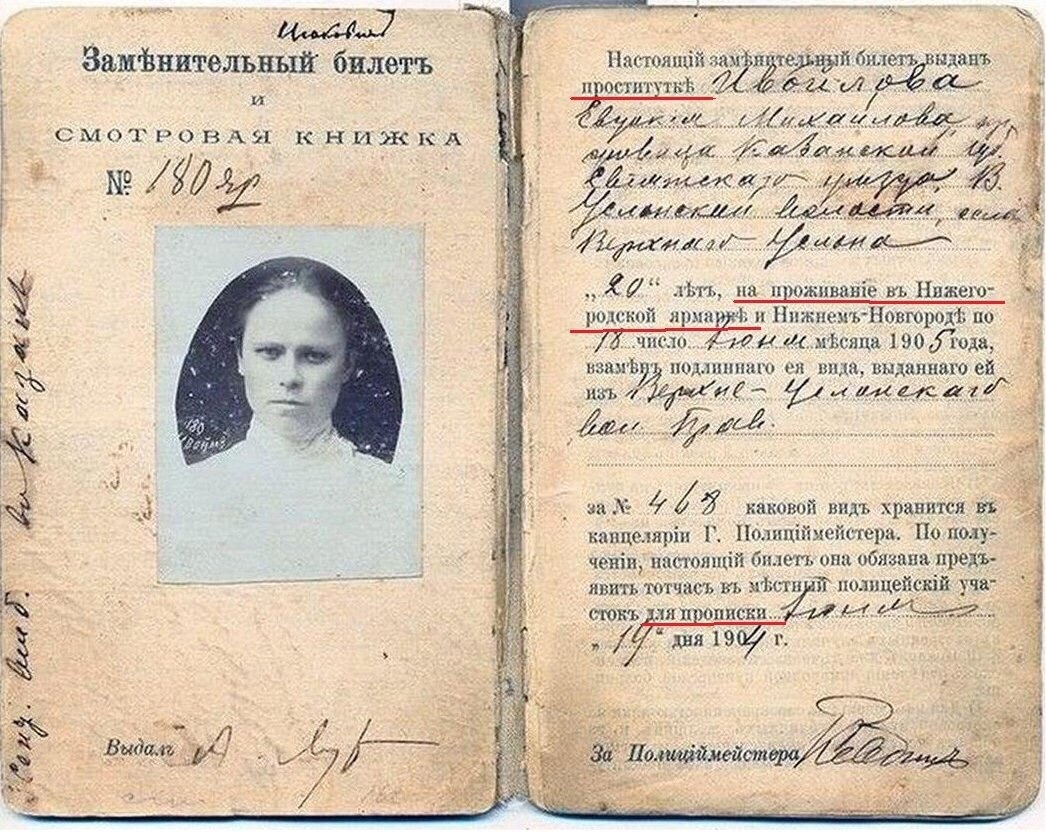 Замѣнительный билетъ
и
СМОТРОВАЯ КНИЖКА
№ 180 яр
180
Выдалъ А.
Настоящій замѣнительный билетъ выданъ
проституткѣ Ивойлова
Евдокія Михайлова,
Казанской губ.
Свіяжскаго уѣзда, В.
Услонской волости, села
Верхнаго Услона
„20“ лѣтъ, на проживаніе въ Нижего-
родской ярмаркѣ и Нижнемъ-Новгородѣ по
18 число Іюня мѣсяца 1905 года,
взамѣнъ подлиннаго ея вида, выданнаго ей
изъ Верхне-Услонскаго
вол Прав.
за № 468 каковой видъ хранится въ
канцеляріи Г. Полиціймейстера. По полу-
ченіи, настоящій билетъ она обязана предъ-
явить тотчасъ въ мѣстный полицейскій уча-
стокъ для прописки Іюня
„19“ дня 1904 г.
За Полиціймейстера